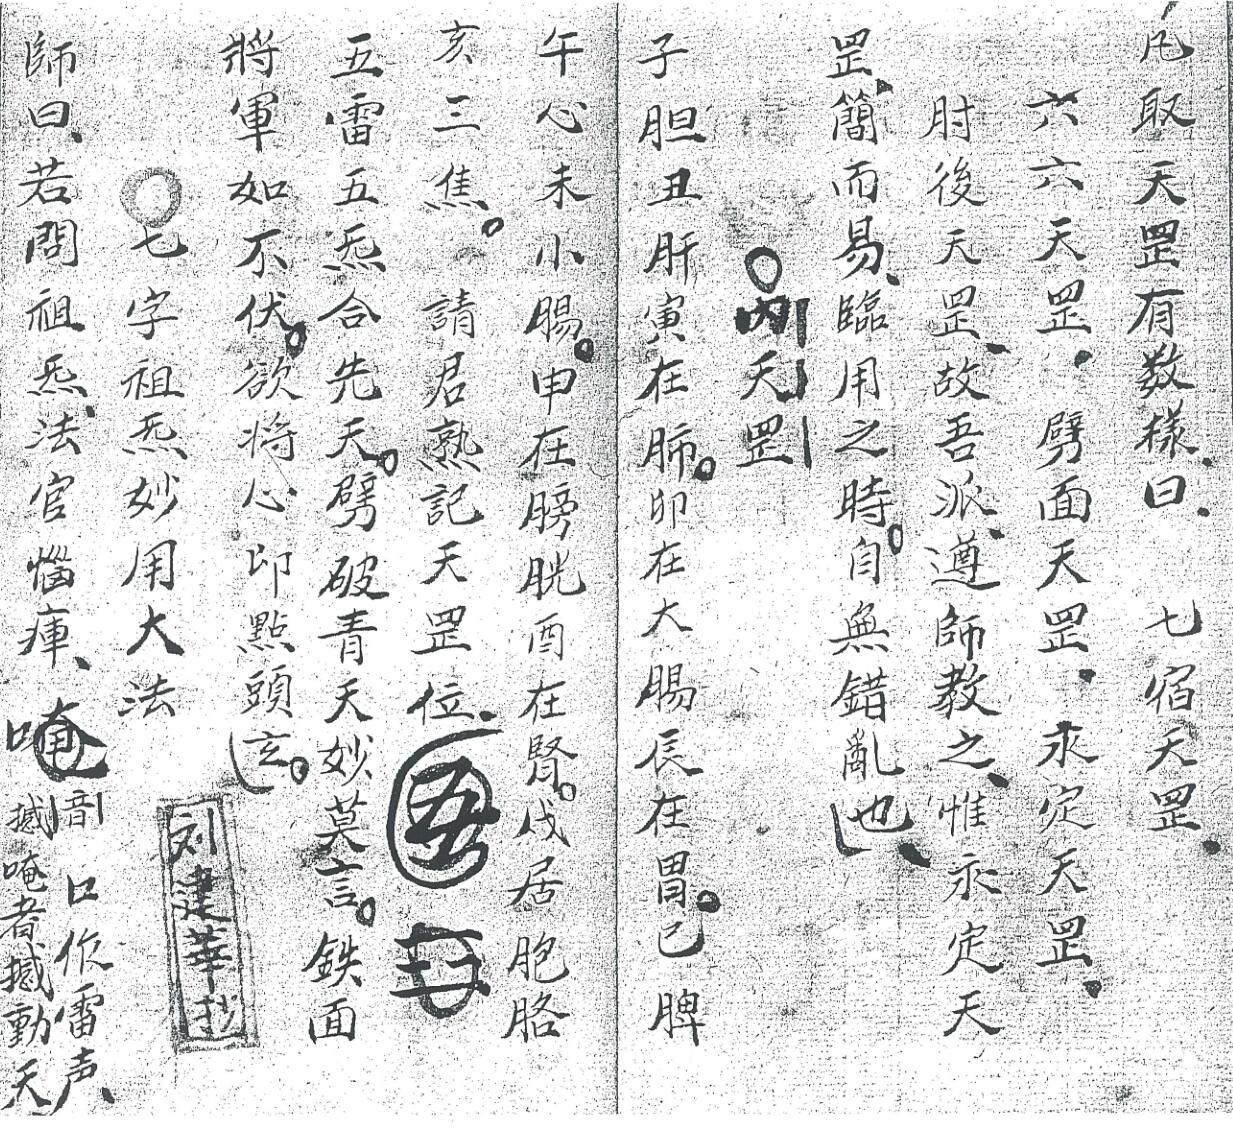 凡取天罡有数樣曰 七宿天罡
六六天罡 劈面天罡 永定天罡
肘後天罡故吾派遵師教之惟永定天
罡簡而易臨用之時自無錯亂也
內天罡
子胆丑肝寅在肺卯在大腸辰在胃巳脾
午心未小腸申在膀胱酉在腎戌居胞胳
亥三焦 請君熟記天罡位
五雷五炁合先天劈破青天妙莫言鉄面
將軍如不伏欲将心印點頭玄
七字祖炁妙用大法
刘建華
師曰若問祖炁法官惱庫唵
音撼 口作雷声
唵者撼動天